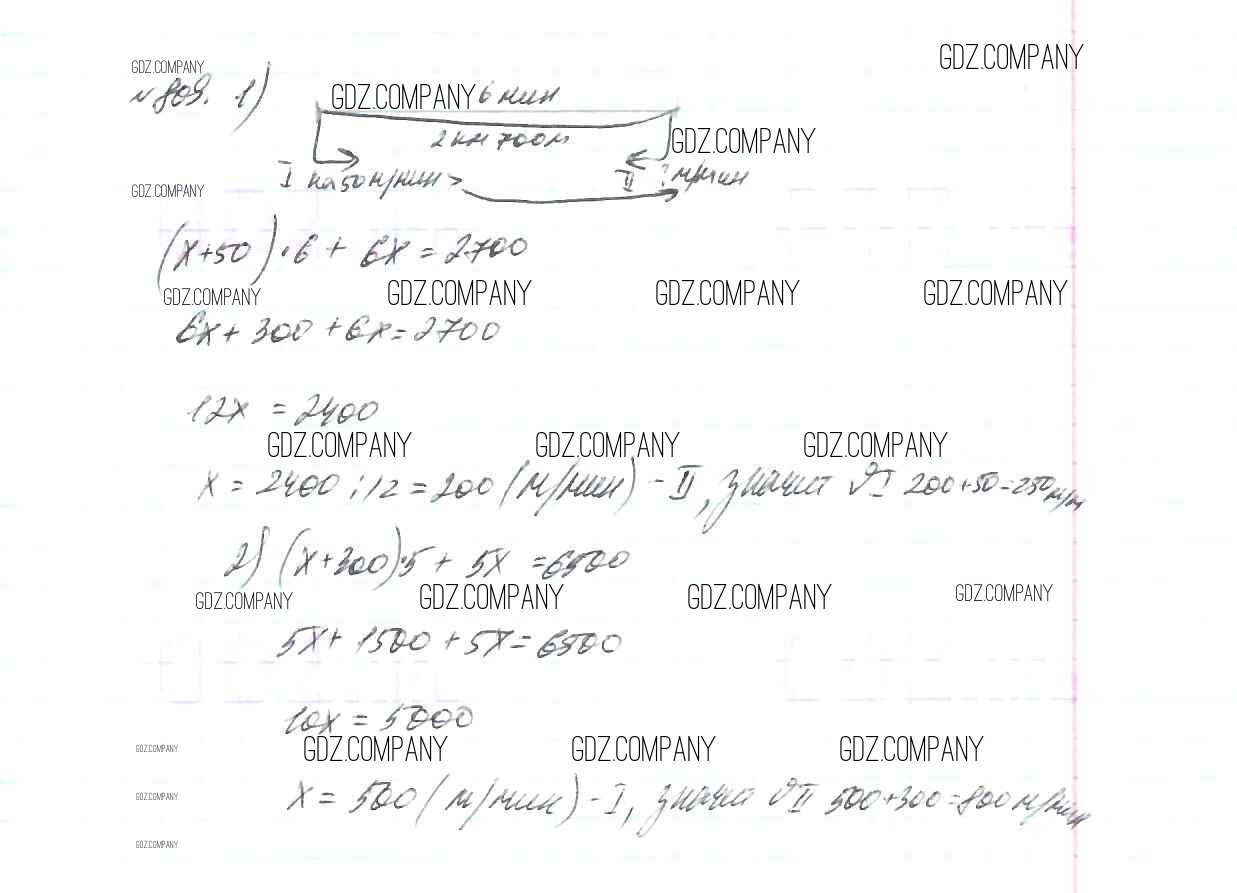 GDZ.COMPANY
GDZ.COMPANY
№ 809. 1)
GDZ.COMPANY 6 мин
2 км 700 м GDZ.COMPANY
I на 50 м/мин > II ? м/мин
GDZ.COMPANY
(x+50)·6 + 6x = 2700
GDZ.COMPANY GDZ.COMPANY GDZ.COMPANY GDZ.COMPANY
6x + 300 + 6x = 2700
12x = 2400
GDZ.COMPANY GDZ.COMPANY GDZ.COMPANY
x = 2400 : 12 = 200 (м/мин) - II, значит υ I 200+50=250 м/м
2) (x+300)·5 + 5x = 6500
GDZ.COMPANY GDZ.COMPANY GDZ.COMPANY GDZ.COMPANY
5x + 1500 + 5x = 6500
10x = 5000
GDZ.COMPANY GDZ.COMPANY GDZ.COMPANY GDZ.COMPANY
x = 500 (м/мин) - I, υ II 500+300=800 м/мин
GDZ.COMPANY
GDZ.COMPANY